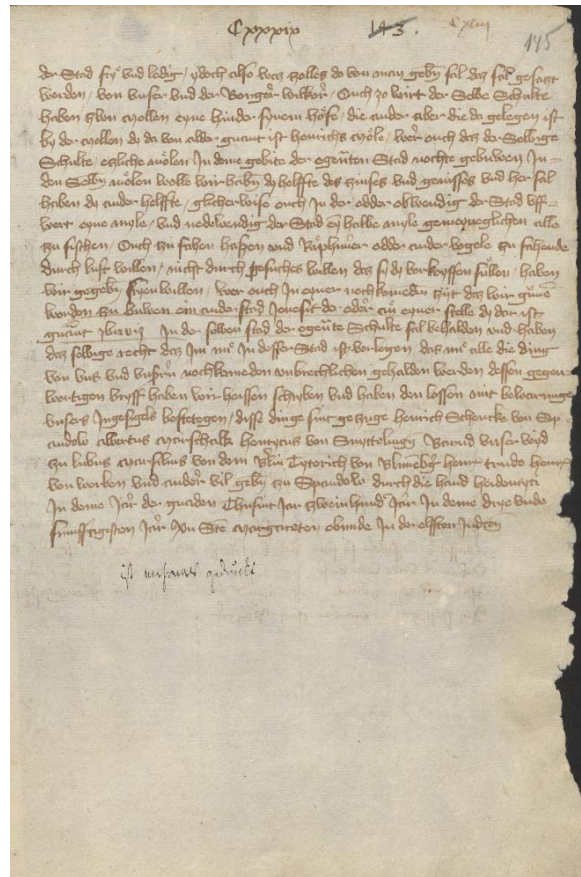 Cxxxix 143. Cxliij 145
der Stad fry vnd ledig / ydoch also vecz zolles do von man gebyn sal daz sal gesaczt
werden / von vnser vnd der Borger wilkor / Ouch zo wirt der Selbe Schulte
haben zwen mollen eyne hinder synem hofe / die ander aber die da gelegen ist
by der mollen dy da von alder genant ist heinrichs mole / wer ouch daz der Selbige
Schulte / ezliche molen In deme gebite der egenten Stad nochte gebuwen In
den Selbyn molen wolle wir habyn dy helffte des zinses vnd genisses vnd her sal
haben dy ander helffte / glicher wise ouch In der odder obwendig der Stad vff
wert eyne myle / vnd nedewendig der Stad ey halbe myle gemeyneglichen alle
zu fischen / Ouch zu fahen haßen vnd Raphuner odder ander vogele zu fahende
durch lust willen / nicht durch gesuches willen daz sy dy vorkouffen sullen / haben
wir gegebyn fryen willen / wer ouch In eyner nochkomeden zyt daz wir
worden zu buwen ein ander stad Jensit der oder an eyner stelle dy dar ist
genant zliwiz In der selben stad der egente Schulte sal behalden vnd haben
daz selbige recht daz Im nu In desser Stad ist vorlegen das nu alle die ding
von vns vnd vnsern nochkomeden vnbrechlichen gehalden werden dessen gegen
wortigen bryff haben wir heissen schryben vnd haben den lossen mit bewarunge
vnsers Ingesegels bestetegen / disse dinge sint gezuge heinrich Schencke von Sp
andalo albertus marschalk henrycus von Snyttelingy vnser voyd
zu lubus marsilius von dem Tyterich von heinr trudo heinr
von workon vnd ander vil gebyn zu Spandalo durch die hand heidenrici
In deme Jar der gnaden Thusint Jar zweinhundert Jar In deme drye vnde
funfftigisten Jar An Sente margareten obinde In der elfften Indicen
ist mehrmals gedruckt